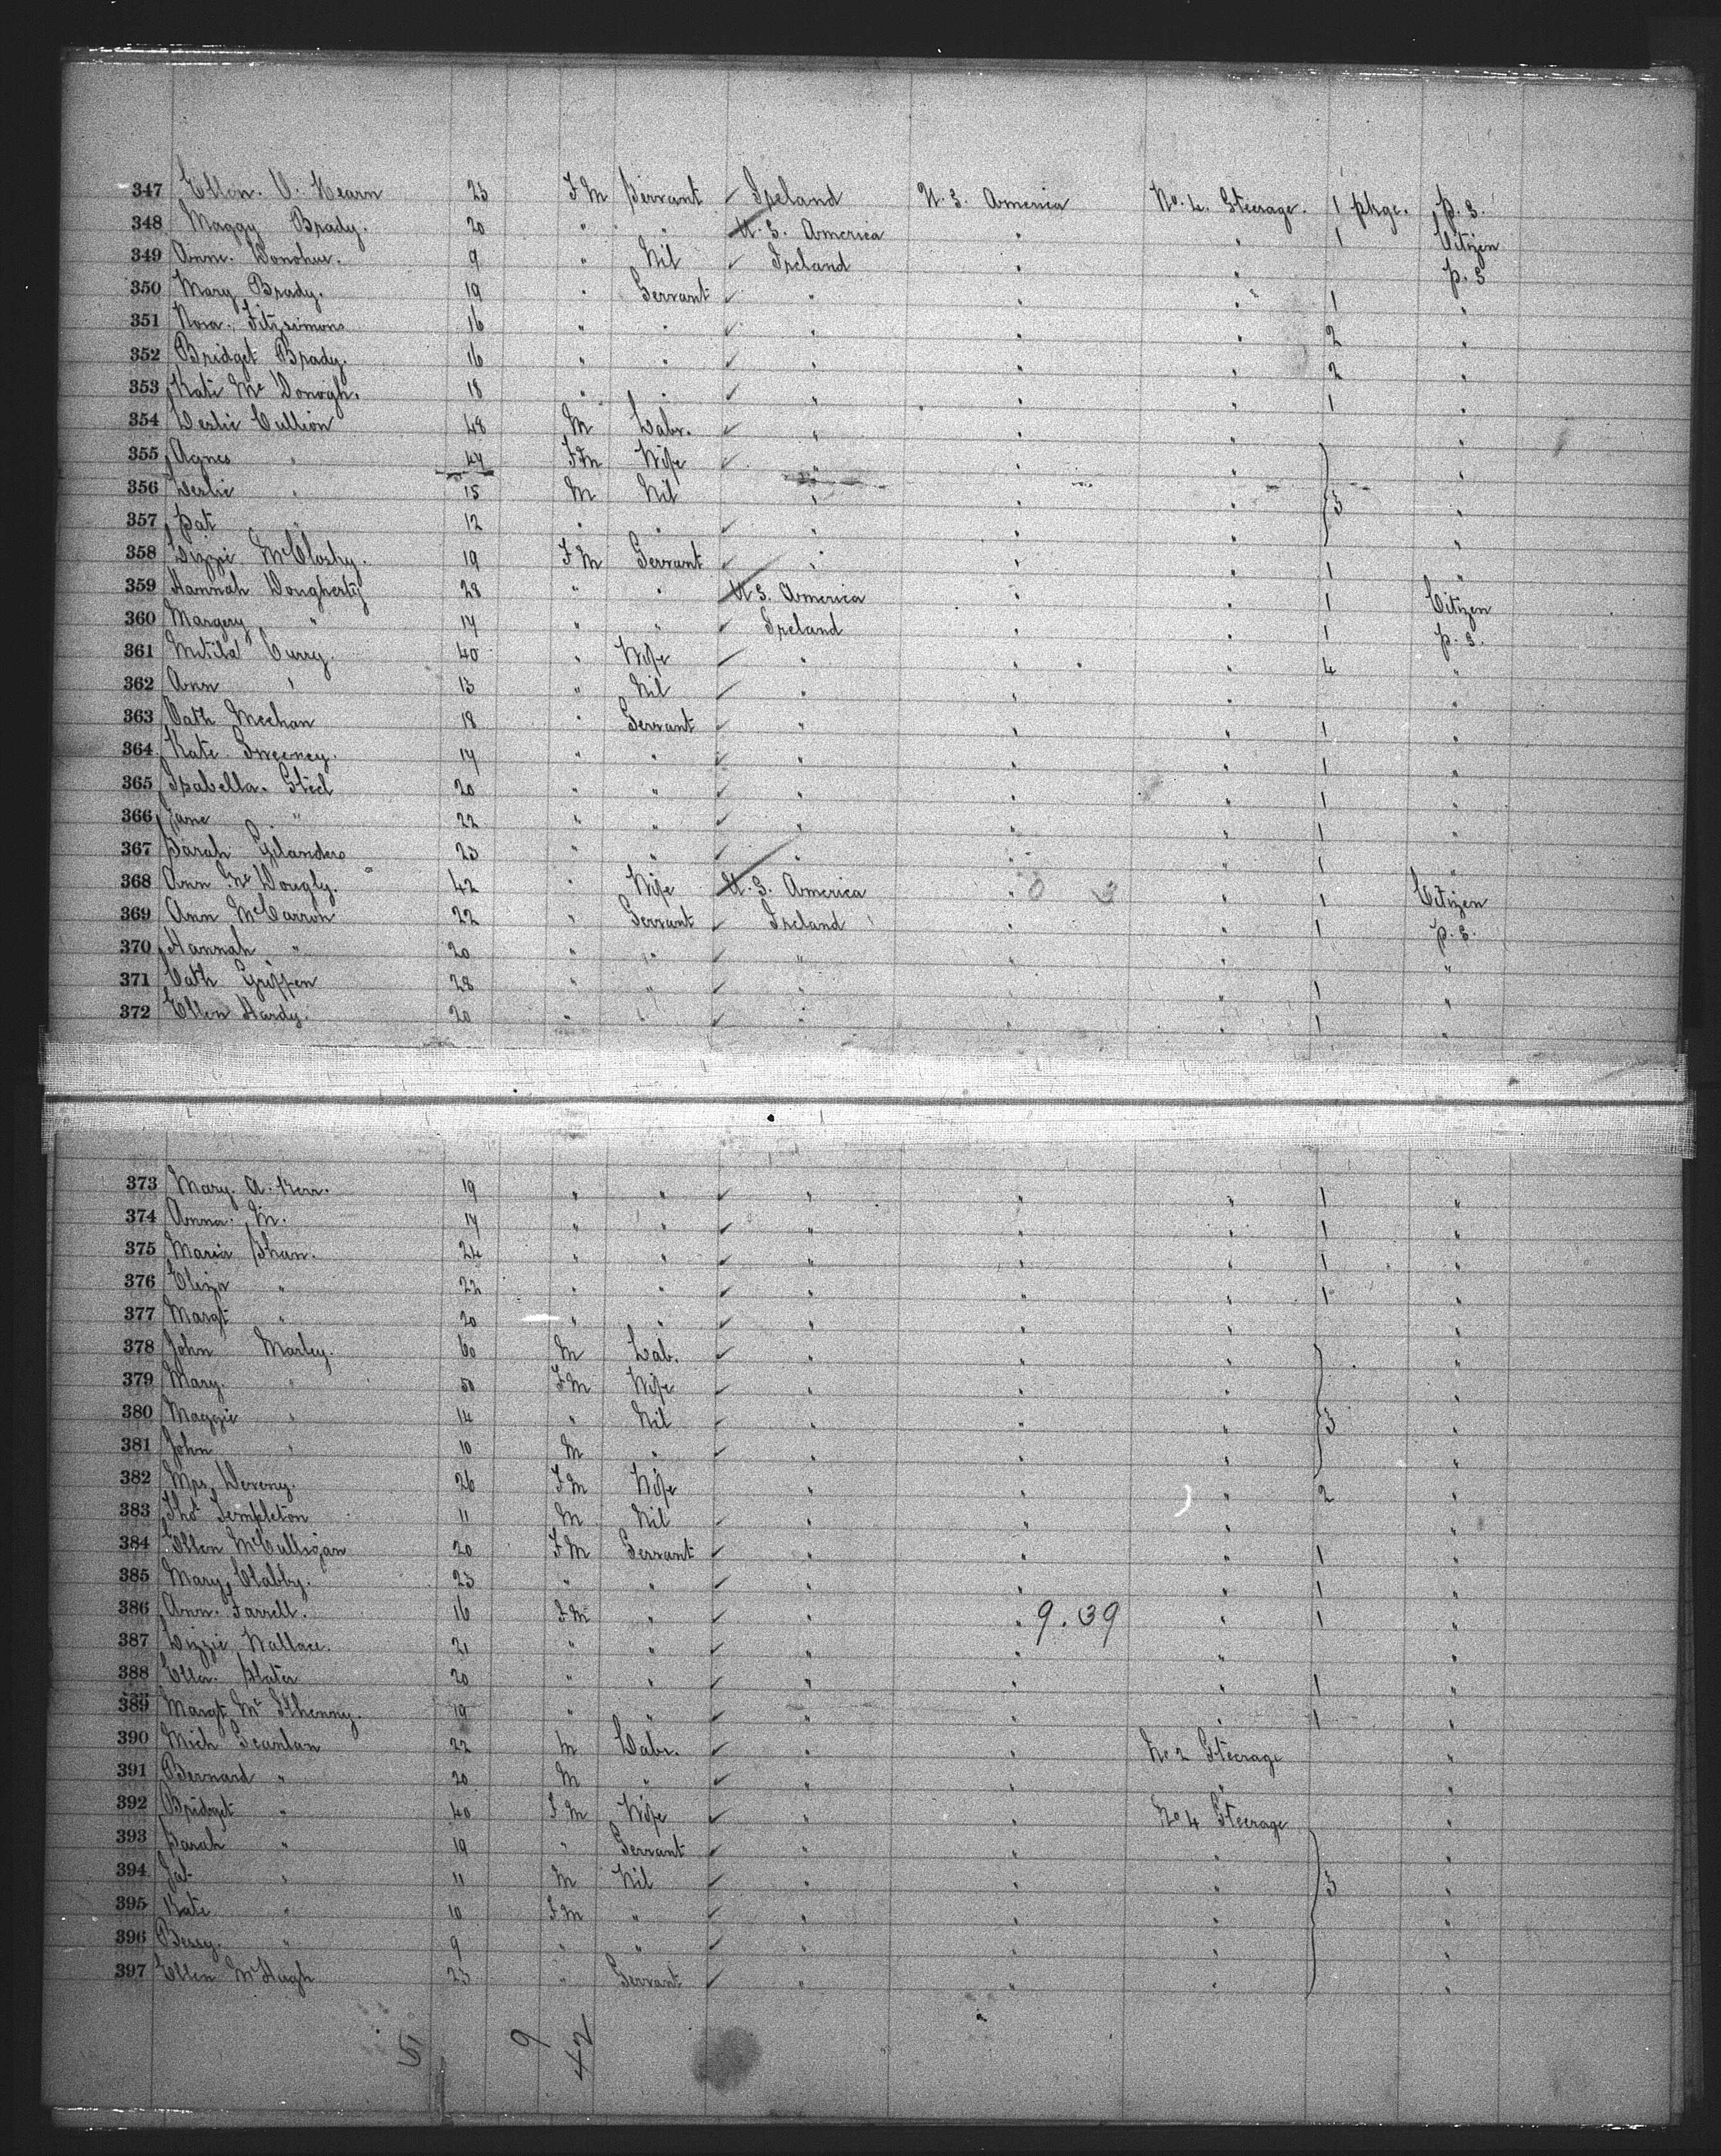 347 Ellen. O. Hearn 23 F M Servant ✓ Ireland U. S. America No. 4. Steerage. 1 pkge. P. S.
348 Maggy Brady. 20 " " U. S. America " " 1 Citizen
349 Annie. Donohue. 9 " Nil ✓ Ireland " " P. S
350 Mary Brady. 19 " Servant ✓ " " " 1 "
351 Nora. Fitzsimons 16 " " ✓ " " " 2 "
352 Bridget Brady. 16 " " ✓ " " " 2 "
353 Kate Mc Donogh. 18 " " ✓ " " " 1 "
354 Leslie Cullion 48 M Labr. ✓ " " " "
355 Agnes " 47 F M Wife ✓ " " " "
356 Leslie " 15 M Nil " " " 3 "
357 Pat " 12 " " ✓ " " " "
358 Lizzie McClosky. 19 F M Servant ✓ " " " 1 "
359 Hannah Dougherty 28 " " U. S. America " " 1 Citizen
360 Margery " 17 " " ✓ Ireland " " 1 P. S.
361 Matild Curry. 40 " Wife ✓ " " " 4 "
362 Ann " 13 " Nil ✓ " " " "
363 Cath Meehan 18 " Servant ✓ " " " 1 "
364 Kate Sweeney. 17 " " ✓ " " " 1 "
365 Isabella. Steel 20 " " ✓ " " " 1 "
366 Jane " 22 " " ✓ " " " 1 "
367 Sarah Gilanders 23 " " ✓ " " " 1 "
368 Ann Mc Dougly. 42 " Wife U. S. America " " 1 Citizen
369 Ann McCarron 22 " Servant ✓ Ireland " " 1 P. S.
370 Hannah " 20 " " ✓ " " " "
371 Cath Griffen 28 " " ✓ " " 1 "
372 Ellen Hardy. 20 " " ✓ " " " 1 "
373 Mary. A. Kerr. 19 " " ✓ " " " 1 "
374 Anna. M. 17 " " ✓ " " " 1 "
375 Maria Shan. 24 " " ✓ " " " 1 "
376 Eliza " 22 " " ✓ " " " 1 "
377 Margt " 20 " " ✓ " " " "
378 John Marley. 60 M Lab. ✓ " " " "
379 Mary. " 50 F M Wife ✓ " " " "
380 Maggie " 14 " Nil ✓ " " " 3 "
381 John " 10 M " ✓ " " " "
382 Mrs Deveny. 26 F M Wife " " " 2 "
383 Thos Templeton 11 M Nil ✓ " " " "
384 Ellen McCulligan 20 F M Servant ✓ " " " 1 "
385 Mary Clabby. 23 " " ✓ " " " 1 "
386 Ann. Farrell. 16 F M " ✓ " " 9.39 " 1 "
387 Lizzie Wallace. 21 " " ✓ " " " "
388 Ellen. Slater 20 " " ✓ " " " 1 "
389 Margt Mc Ilhenny. 19 " " ✓ " " " 1 "
390 Mich Scanlan 22 M Labr. ✓ " " No 2 Steerage "
391 Bernard " 20 M " ✓ " " " "
392 Bridget " 40 F M Wife ✓ " " No 4 Steerage "
393 Sarah " 19 " Servant ✓ " " " "
394 Pat " 11 M Nil ✓ " " " 3 "
395 Kate " 10 F M " ✓ " " " "
396 Bessy. " 9 " " ✓ " " " "
397 Ellen McHugh 23 " Servant ✓ " " " "
5 9 42